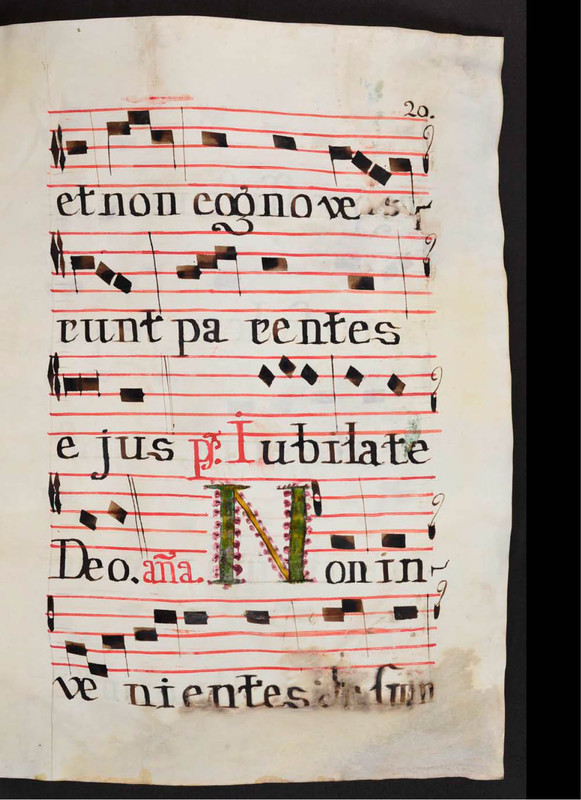 20.
et non cognove-
runt parentes
ejus ps. Iubilate
Deo. aña. Non in-
ve nientes